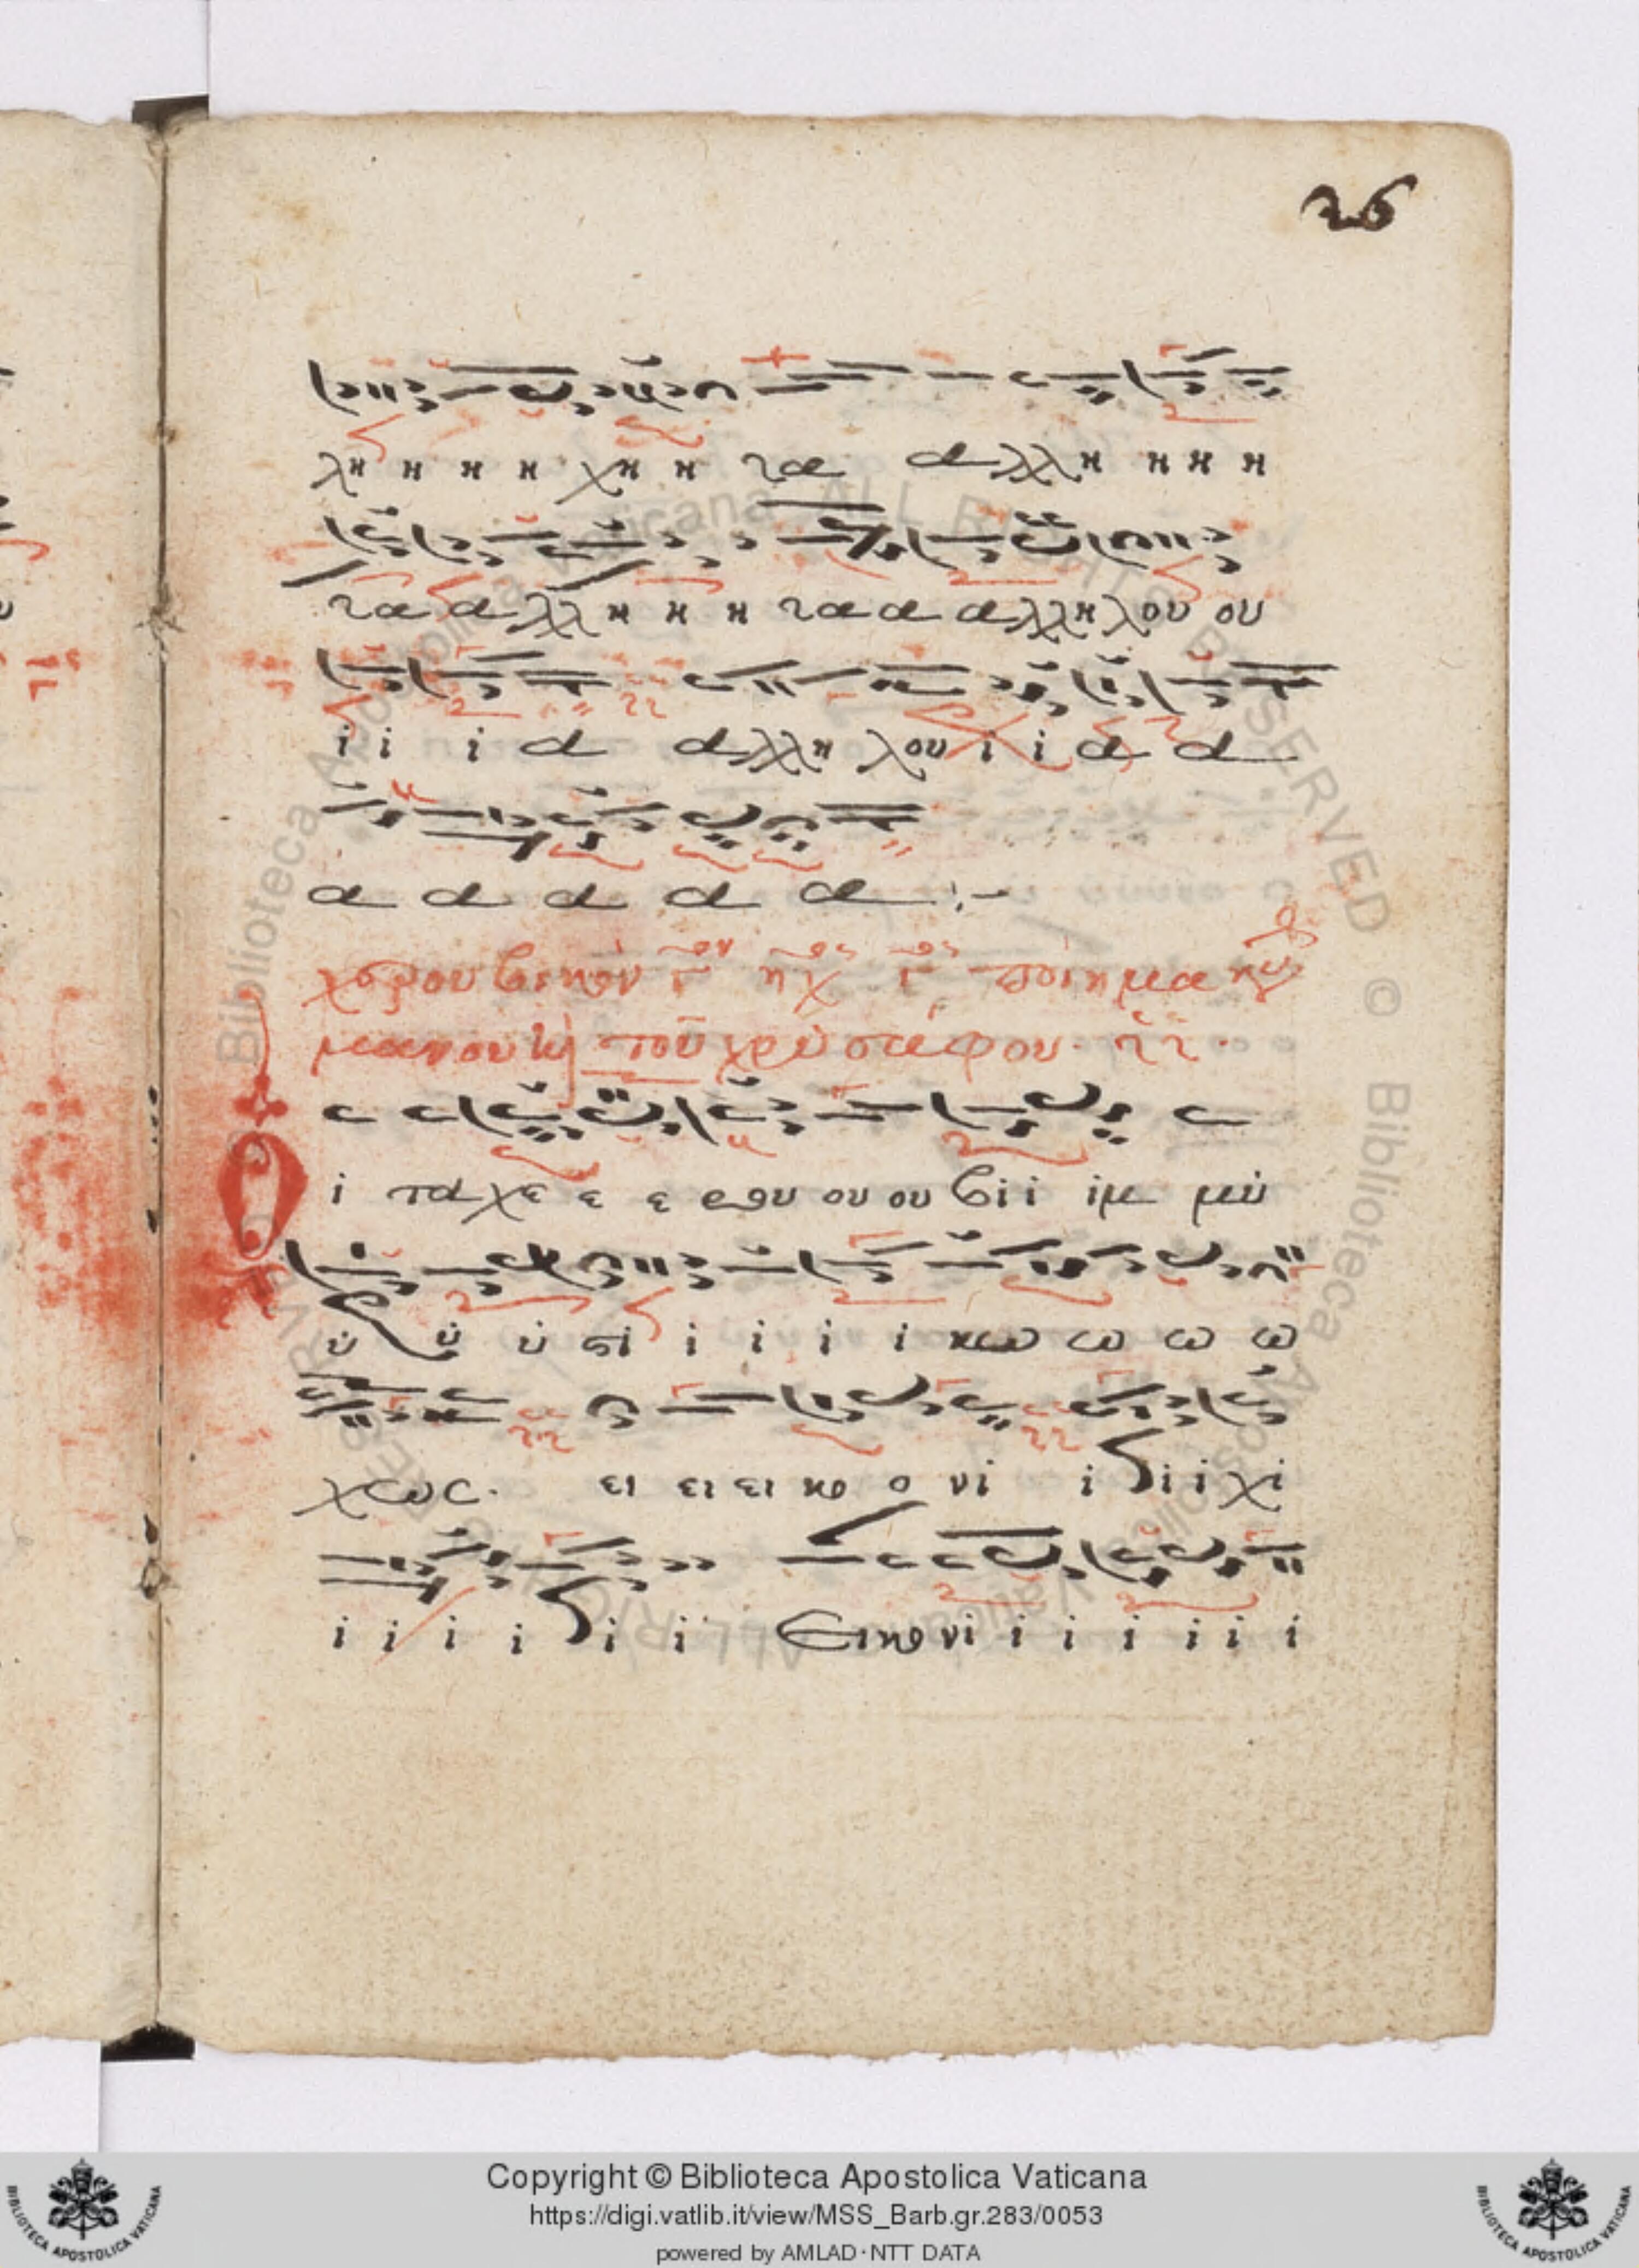 26
λη η η η χη η τα αλλη η η η
τα α λλη η η τα α α αλλη λου ου
ι ι ι α αλλη λου ι ι α α
α α α α α :-
χερουβικὸν ποίημα κυροῦ
μανουὴλ τοῦ χρυσάφου.
Ο ι τα χε ε ε ερου ου ου βι ι ιμ μυ
υ υ υ στι ι ι ι ι κω ω ω ω
χως. ει ει ει κο ο νι ι ι ι χι
ι ι ι ι ι ι Εικο νι ι ι ι ι ι ι
Copyright © Biblioteca Apostolica Vaticana
https://digi.vatlib.it/view/MSS_Barb.gr.283/0053
powered by AMLAD·NTT DATA